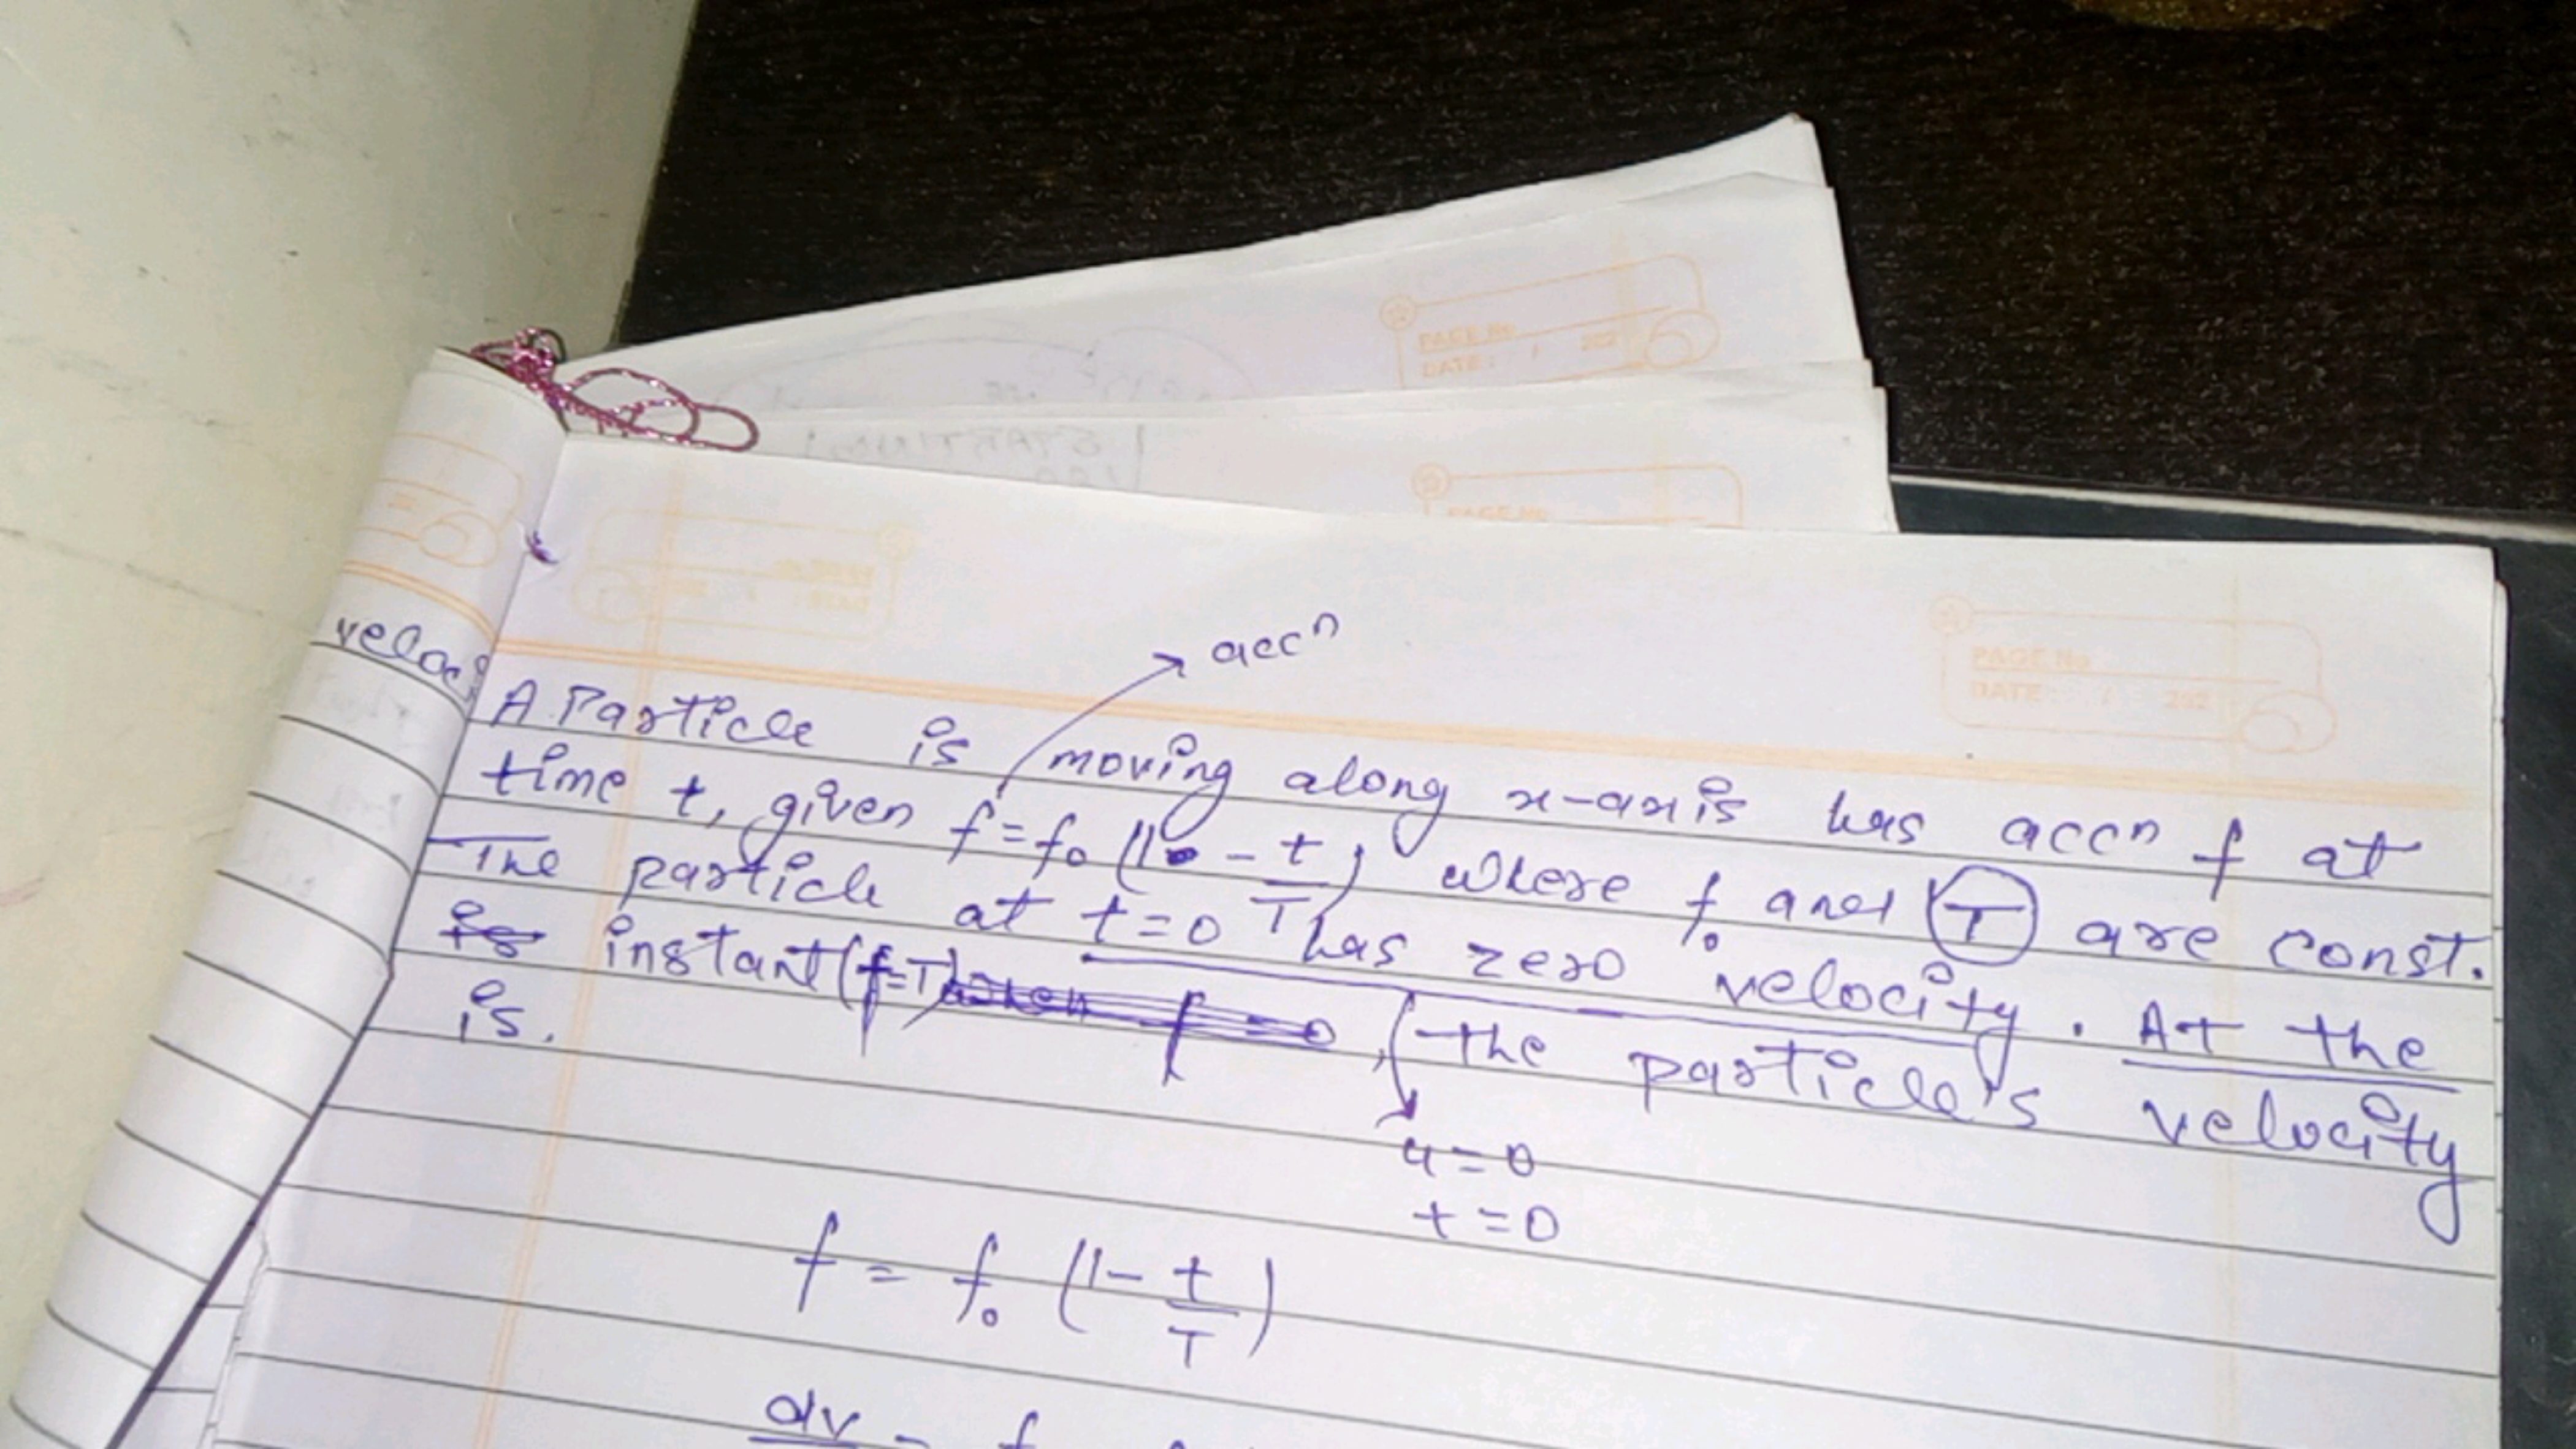 PAGE No.
DATE: / 202
PAGE No
PAGE No
DATE: / 202
veloc
accⁿ
A Particle is moving along x-axis has accⁿ f at
time t, given f = f₀ (1 - t/T) where f₀ and T are const.
The particle at t=0 has zero velocity. At the
instant (f=T) the particle's velocity
is.
u=0
t=0
f = f₀ (1 - t/T)
dv = f